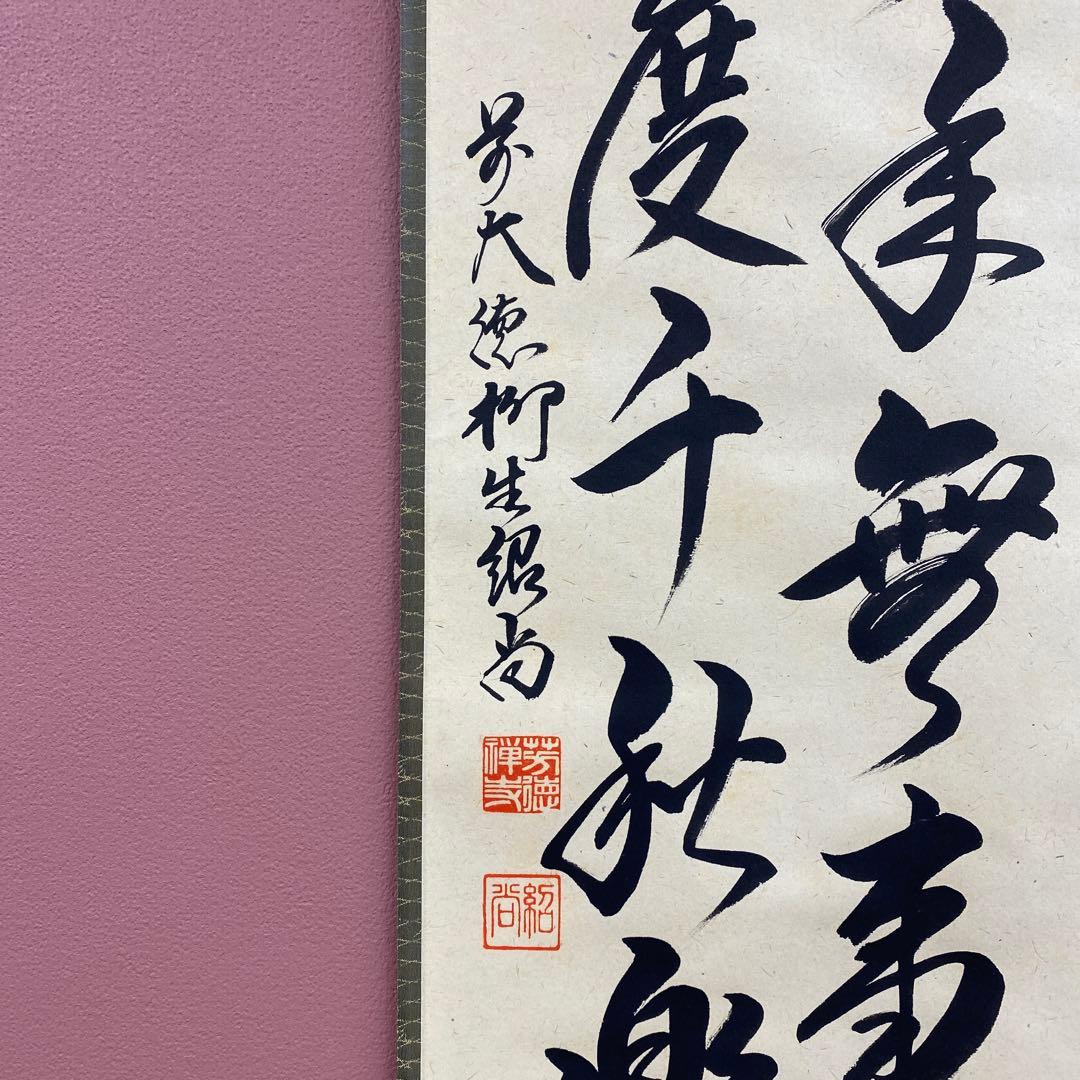 年無事
度千秋楽
前大徳柳生紹尚
芳徳禅寺
紹尚